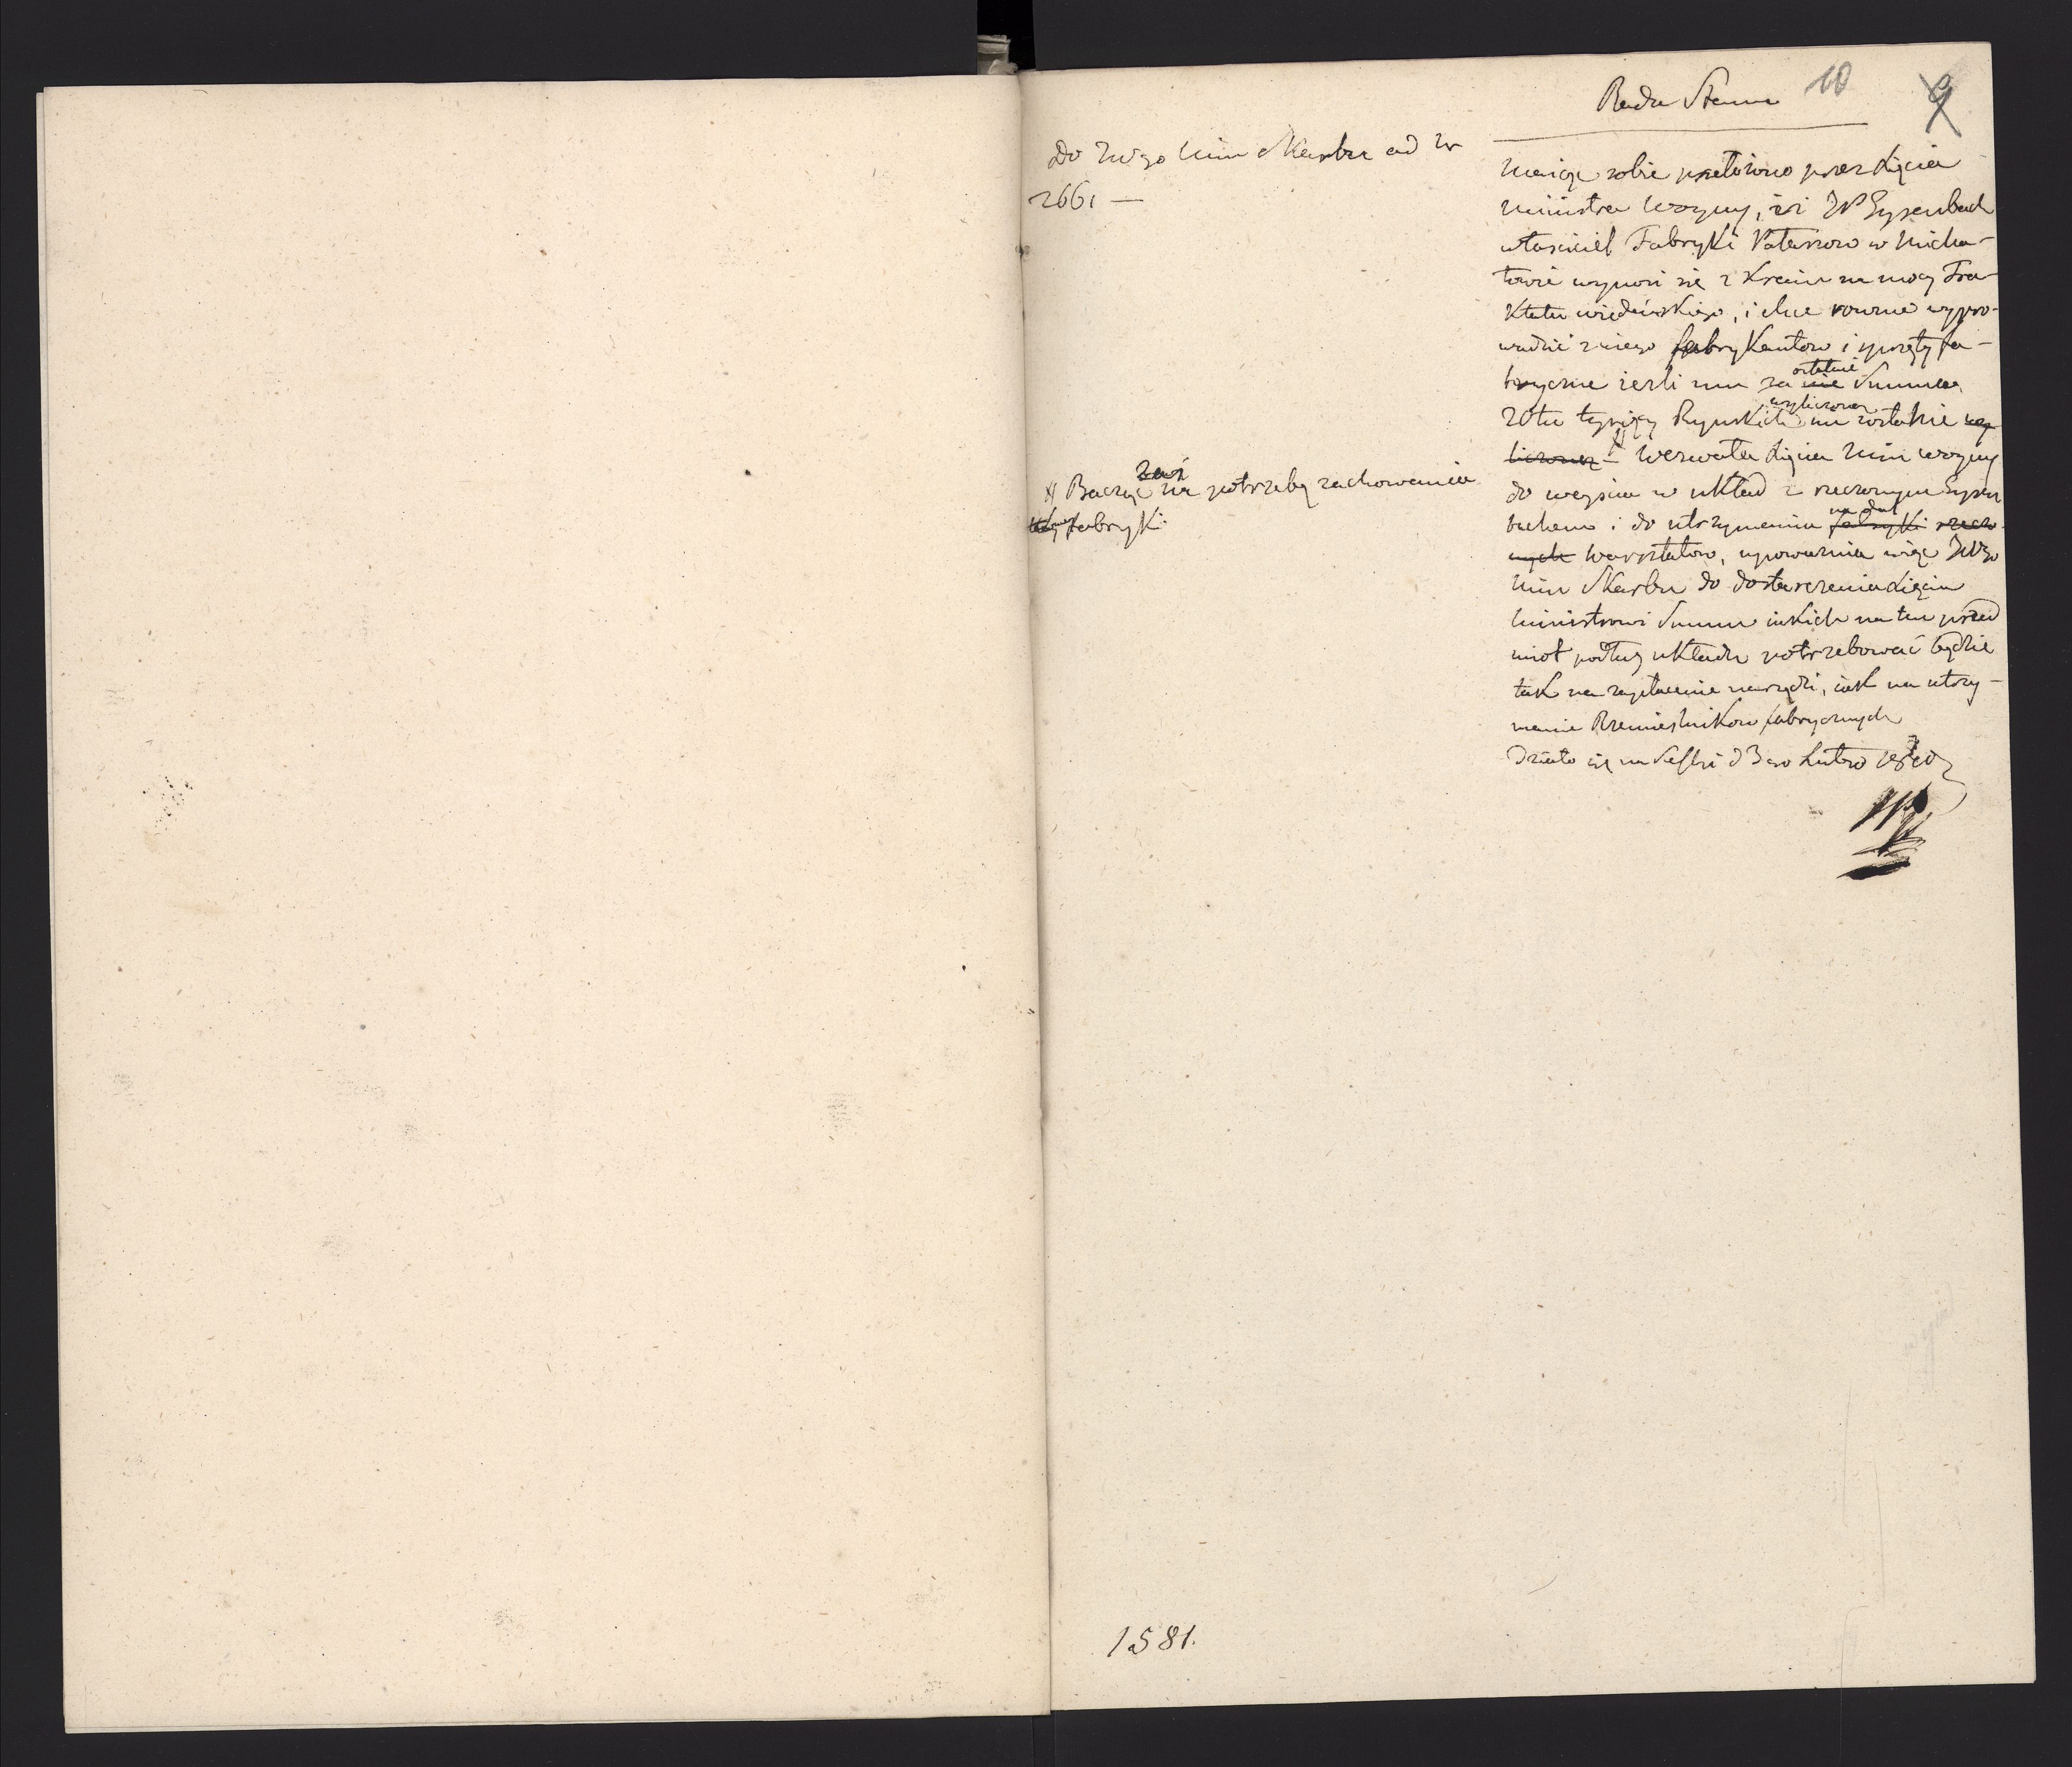 Rada Stanu
10
9
Do JW go Min Skarbu ad N
2661 —
Maiąc sobie przełożono przez Xięcia
Ministra Woyny, iż JP Eysenbach
właściciel Fabryki Pałaszow w Micha-
łowie wynosi się z Kraiu na mocy Tra-
ktatu wiedeńskiego, i chce rownie wypro-
wadzić z niego fabrykantow i sprzęty fa-
bryczne ieśli mu za nie ostatnie summa
20tu tysięcy Ryńskich wyliczona nie zostanie wy-
liczona — # Wezwała Xięcia Min Woyny
do weyścia w układ z rzeczonym Eysen
bachem i do utrzymania na dal fabryki rzeczo-
nych Warsztatow, upoważnia więc JWgo
Min Skarbu do dostarczenia Xięciu
Ministrowi Summ iakich na ten przed
miot podług układu potrzebować będzie
tak na zapłacenie narzędzi, iak na utrzy-
manie Rzemieślnikow fabrycznych
Działo się na Sessyi d 3 go Lutego 1810
# Bacząc zaś na potrzebę zachowania
fabryki
1581.